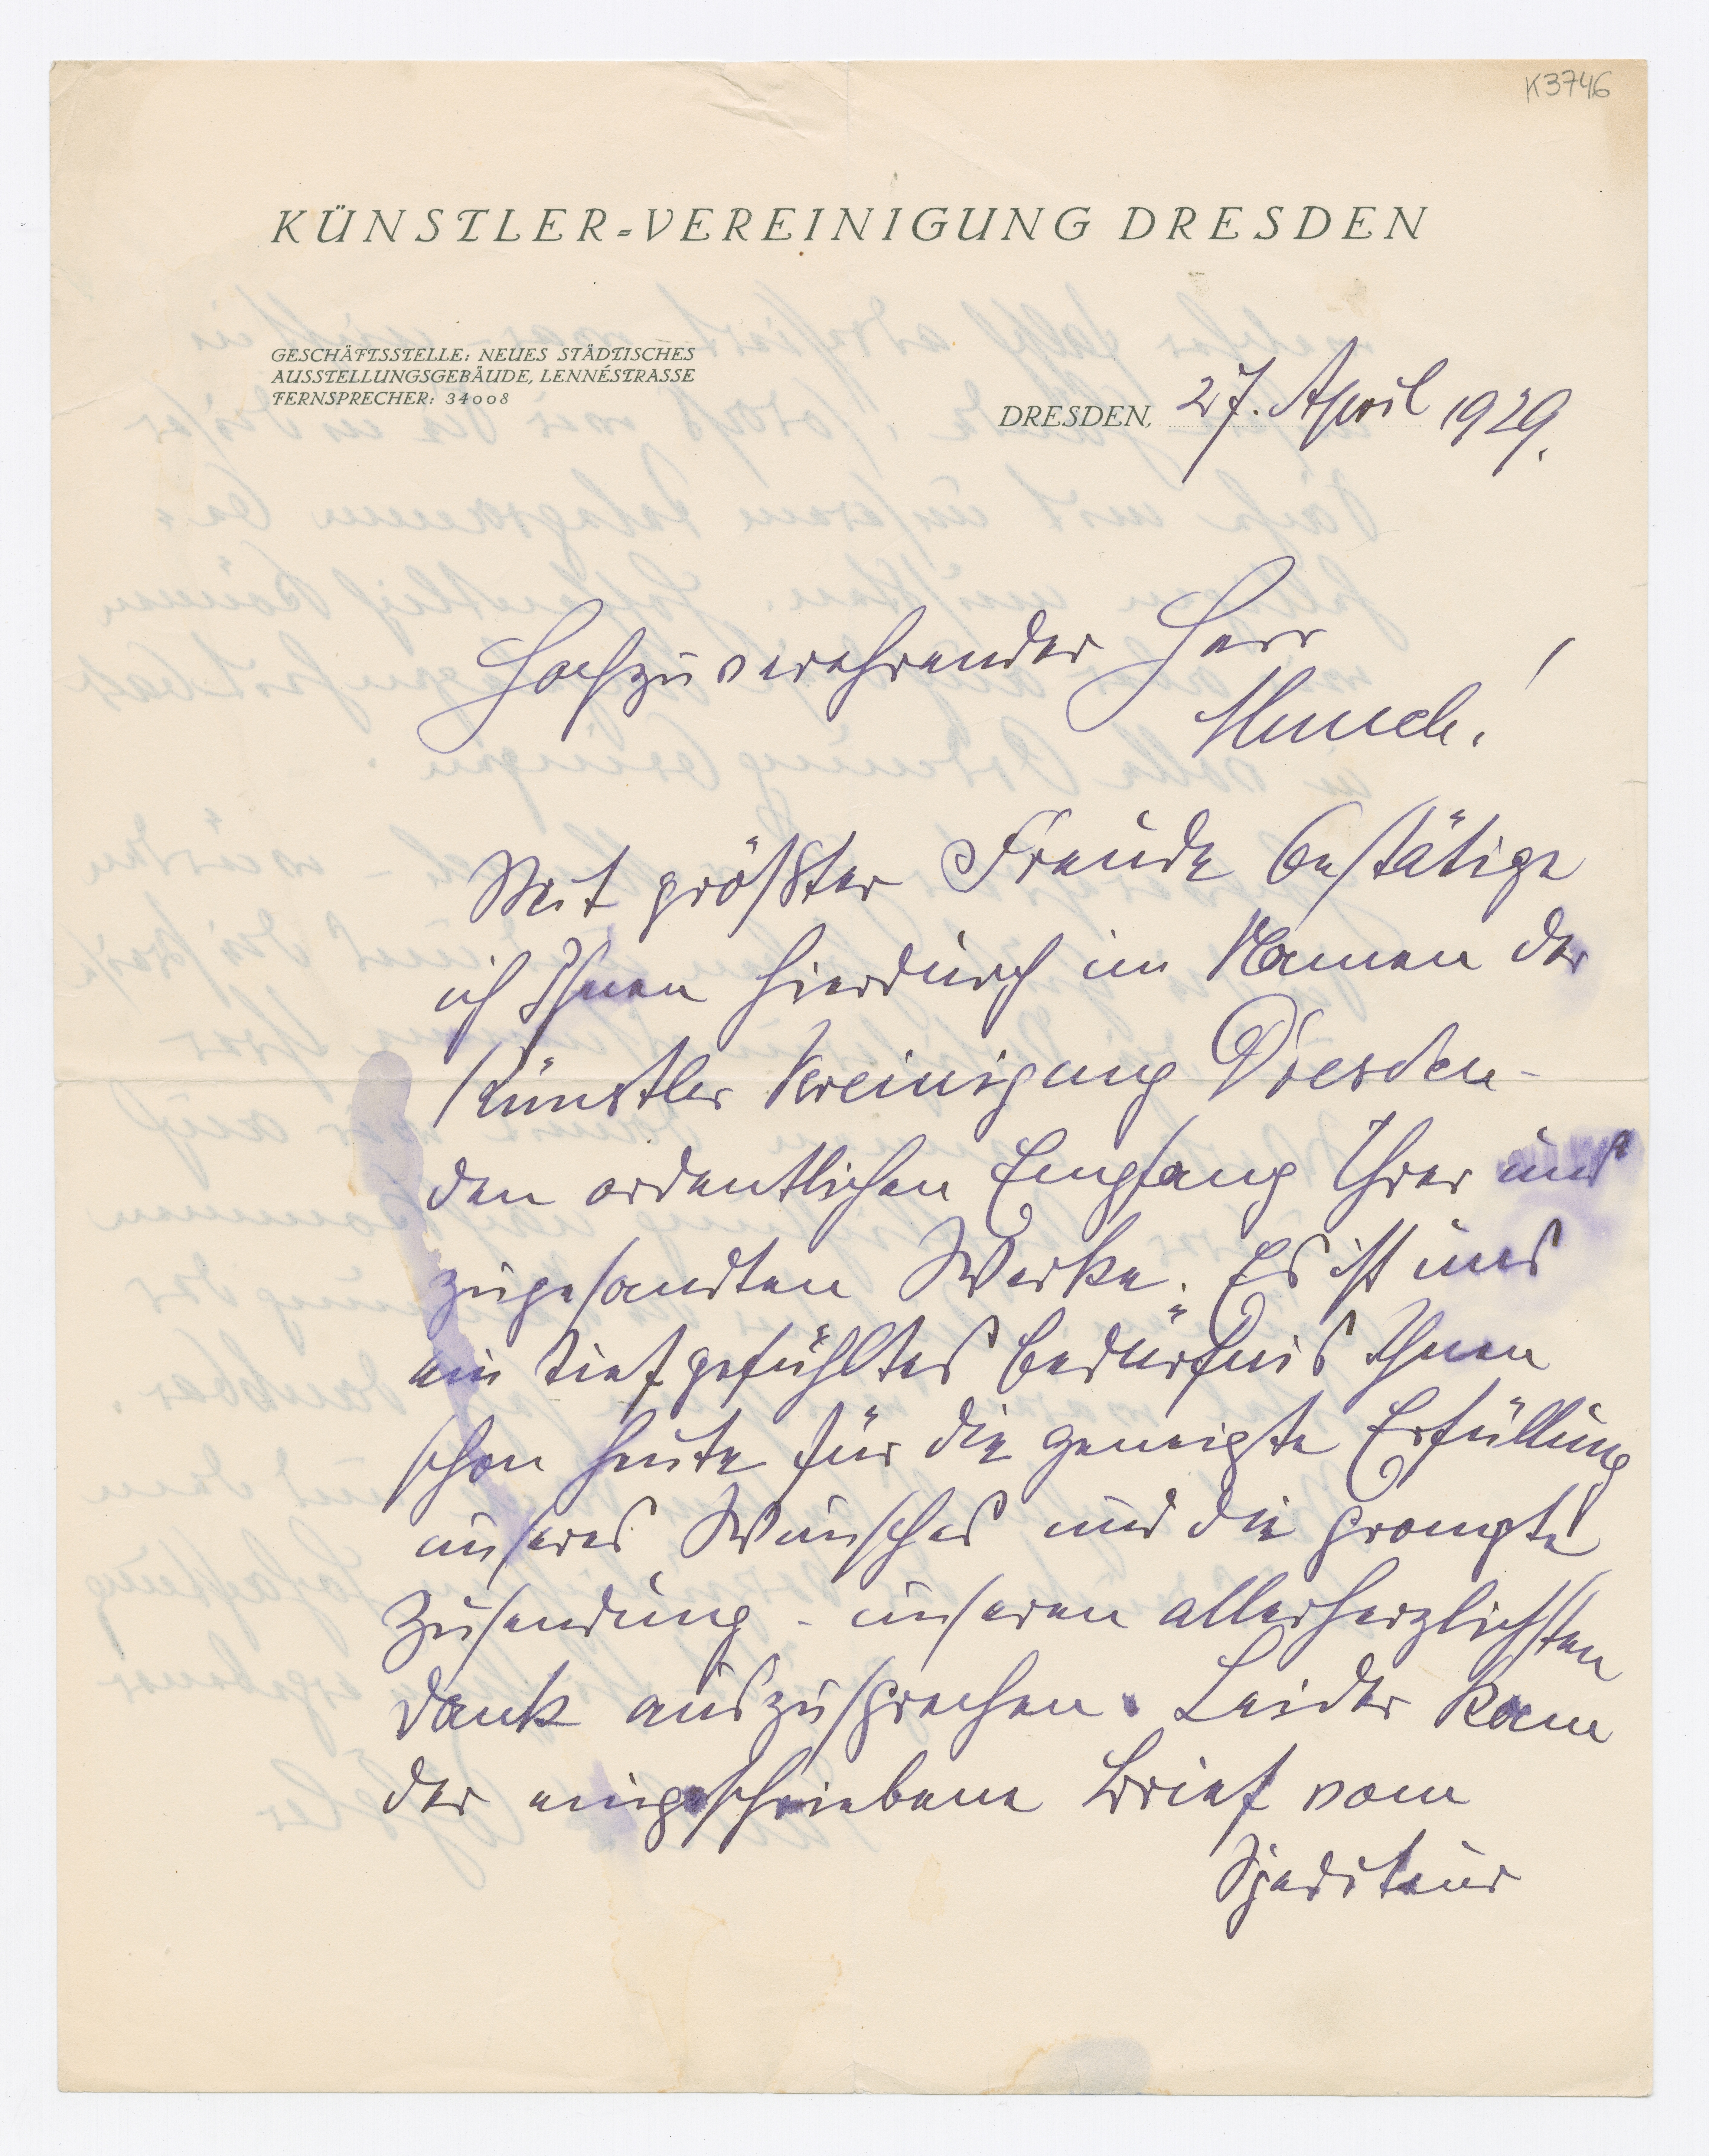 K3746
KÜNSTLER-VEREINIGUNG DRESDEN
GESCHÄFTSSTELLE: NEUES STÄDTISCHES
AUSSTELLUNGSGEBÄUDE, LENNÉSTRASSE
FERNSPRECHER: 34008
DRESDEN, 27. April 1929.
Hochzuverehrender Herr
Munch!
Mit größter Freude bestätige
ich Ihnen hierdurch im Namen der
Künstler Vereinigung Dresden-
den ordentlichen Empfang Ihrer uns
zugesandten Werke. Es ist uns
ein tiefgefühltes Bedürfnis Ihnen
schon heute für die geneigte Erfüllung
unseres Wunsches und die prompte
Zusendung - unseren allerherzlichsten
Dank auszusprechen. Leider kam
der eingeschriebene Brief vom
Spediteur